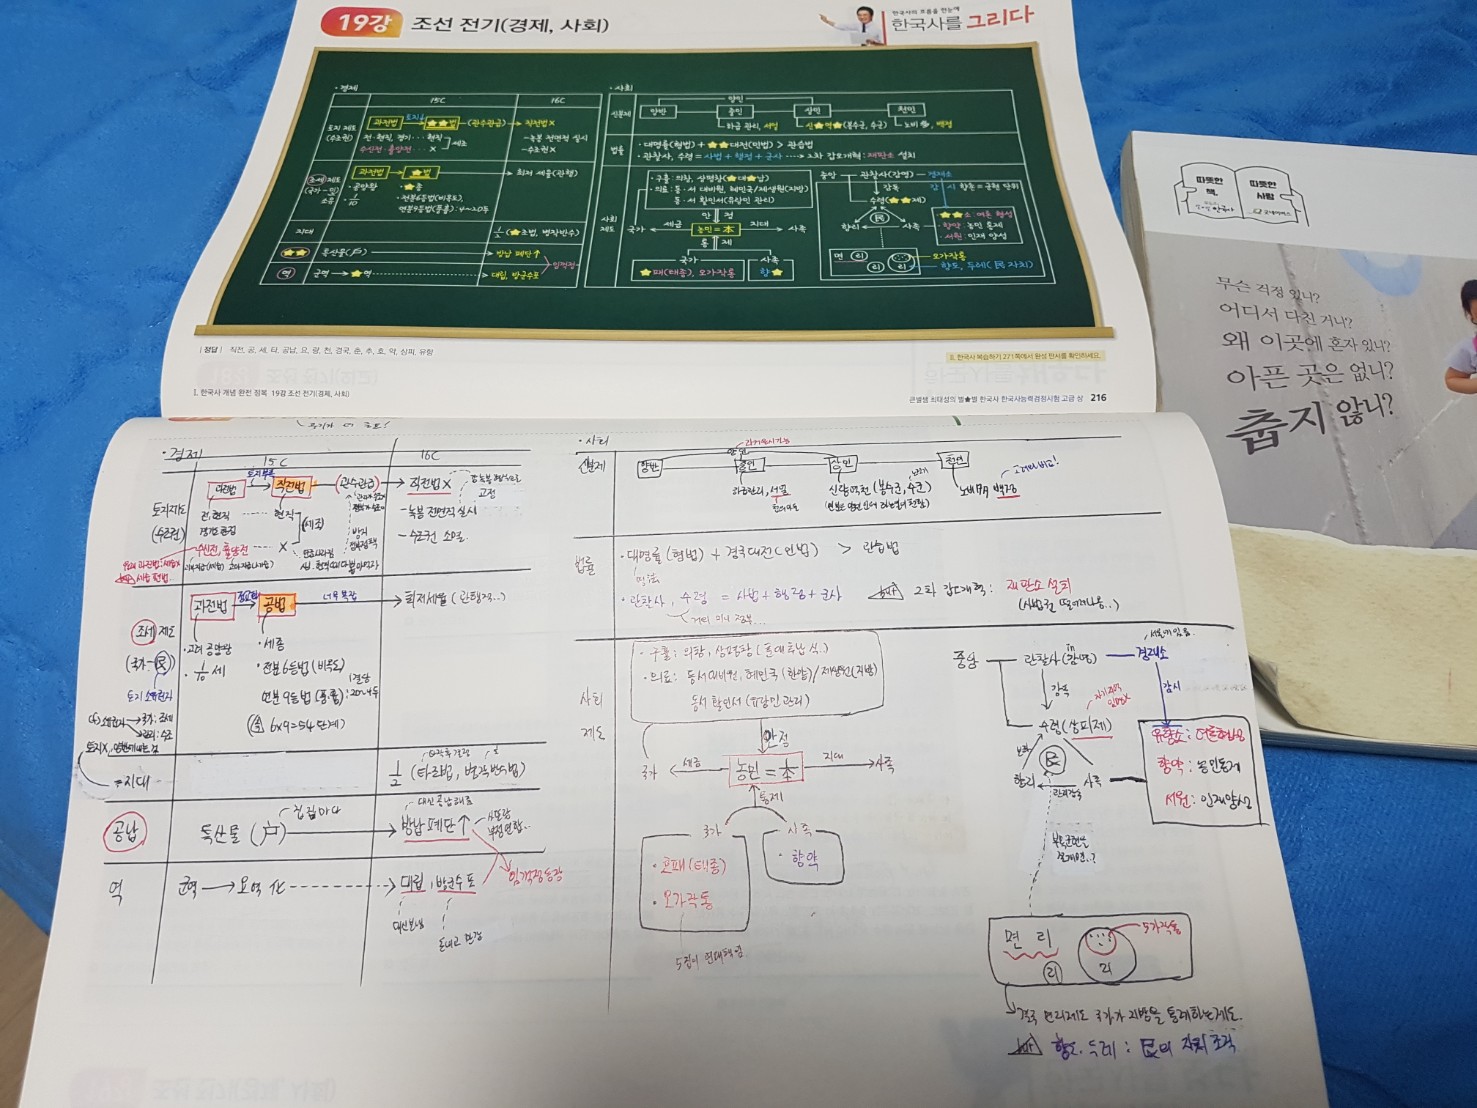 19강 조선 전기(경제, 사회)
한국사의 흐름을 한눈에
한국사를 그리다
·경제
15C
16C
토지 제도
(수조권)
과전법
토지↓
★★법
(관수관급)
직전법X
전·현직, 경기… 현직
수신전·휼양전… X
세조
-녹봉 전면적 실시
-수조권X
조세제도
(국가-민)
소유
과전법
★법
최저 세율(관행)
·공양왕
·1/10
·★종
·전분6등법(비옥도),
연분9등법(풍흉): 4~20두
지대
1/2 (★조법, 병작반수)
★★
특산물(戶)
방납 폐단↑
역
군역
★역
대립, 방군수포
임꺽정
·사회
신분제
양인
양반
중인
상민
천민
하급 관리, 서얼
신★역★(봉수군, 수군)
노비 多, 백정
법률
·대명률(형법) + ★★대전(민법) > 관습법
·관찰사, 수령 = 사법 + 행정 + 군사 ····> 2차 갑오개혁: 재판소 설치
사회
제도
·구휼: 의창, 상평창(★대★납)
·의료: 동·서 대비원, 혜민국/제생원(지방)
동·서 활인서(유랑민 관리)
안 정
국가
세금
농민=本
지대
사족
통 제
국가
★패(태종), 오가작통
사족
향★
중앙
관찰사(감영)
경재소
감독
수령(★★제)
감 시
향촌=군현 단위
民
향리
사족
·★★소: 여론 형성
·향약: 농민 통제
·서원: 인재 양성
면 리
리
리
오가작통
향도, 두레(民 자치)
[정답] 직전, 공, 세, 타, 공납, 요, 량, 천, 경국, 춘, 추, 호, 약, 상피, 유향
Ⅱ. 한국사 복습하기 271쪽에서 완성 판서를 확인하세요.
Ⅰ. 한국사 개념 완전 정복 19강 조선 전기(경제, 사회)
큰별쌤 최태성의 별★별 한국사 한국사능력검정시험 고급 상 216
따뜻한
책,
따뜻한
사람
무슨 걱정 있니?
어디서 다친 거니?
왜 이곳에 혼자 있니?
아픈 곳은 없니?
춥지 않니?
·경제
15C
16C
토지제도
(수조권)
과전법
토지부족
직전법
(관수관급)
직전법X
전,현직
현직
(세조)
-녹봉 전면적 실시
-수조권 소멸
수신전, 휼양전
X
조세제도
(국가-民)
토지 소유권자
과전법
공법
너무 복잡
최저세율 (관행적..)
·고려 공양왕
·1/10 세
·세종
·전분6등법(비옥도)
연분9등법(풍흉)
6x9=54단계
=지대
1/2 (타조법, 병작반수법)
공납
특산물(戶)
집집마다
방납 폐단↑
임꺽정 등장
역
군역
요역화
대립, 방군수포
대신보냄
돈내고 면제
·사회
신분제
양인
양반
중인
상민
천민
하급관리, 서얼
신량역천(봉수군,수군)
노비 多, 백정
법률
·대명률(형법) + 경국대전(민법) > 관습법
·관찰사, 수령 = 사법+행정+군사
2차 갑오개혁: 재판소 설치
사회
제도
·구휼: 의창, 상평창(춘대추납 식..)
·의료: 동서대비원, 혜민국(한양)/제생원(지방)
동서 활인서(유랑민 관리)
안정
국가
세금
농민=本
지대
사족
통제
국가
·호패(태종)
·오가작통
5집이 연대책임
사족
·향약
중앙
관찰사(감영)
경재소
감독
감시
수령(상피제)
民
향리
사족
유향소: 여론형성
향약: 농민통제
서원: 인재양성
면 리
리
리
5가작통
결국 면리제도 국가가 지방을 통제하는 제도.
향도, 두레: 民의 자치 조직